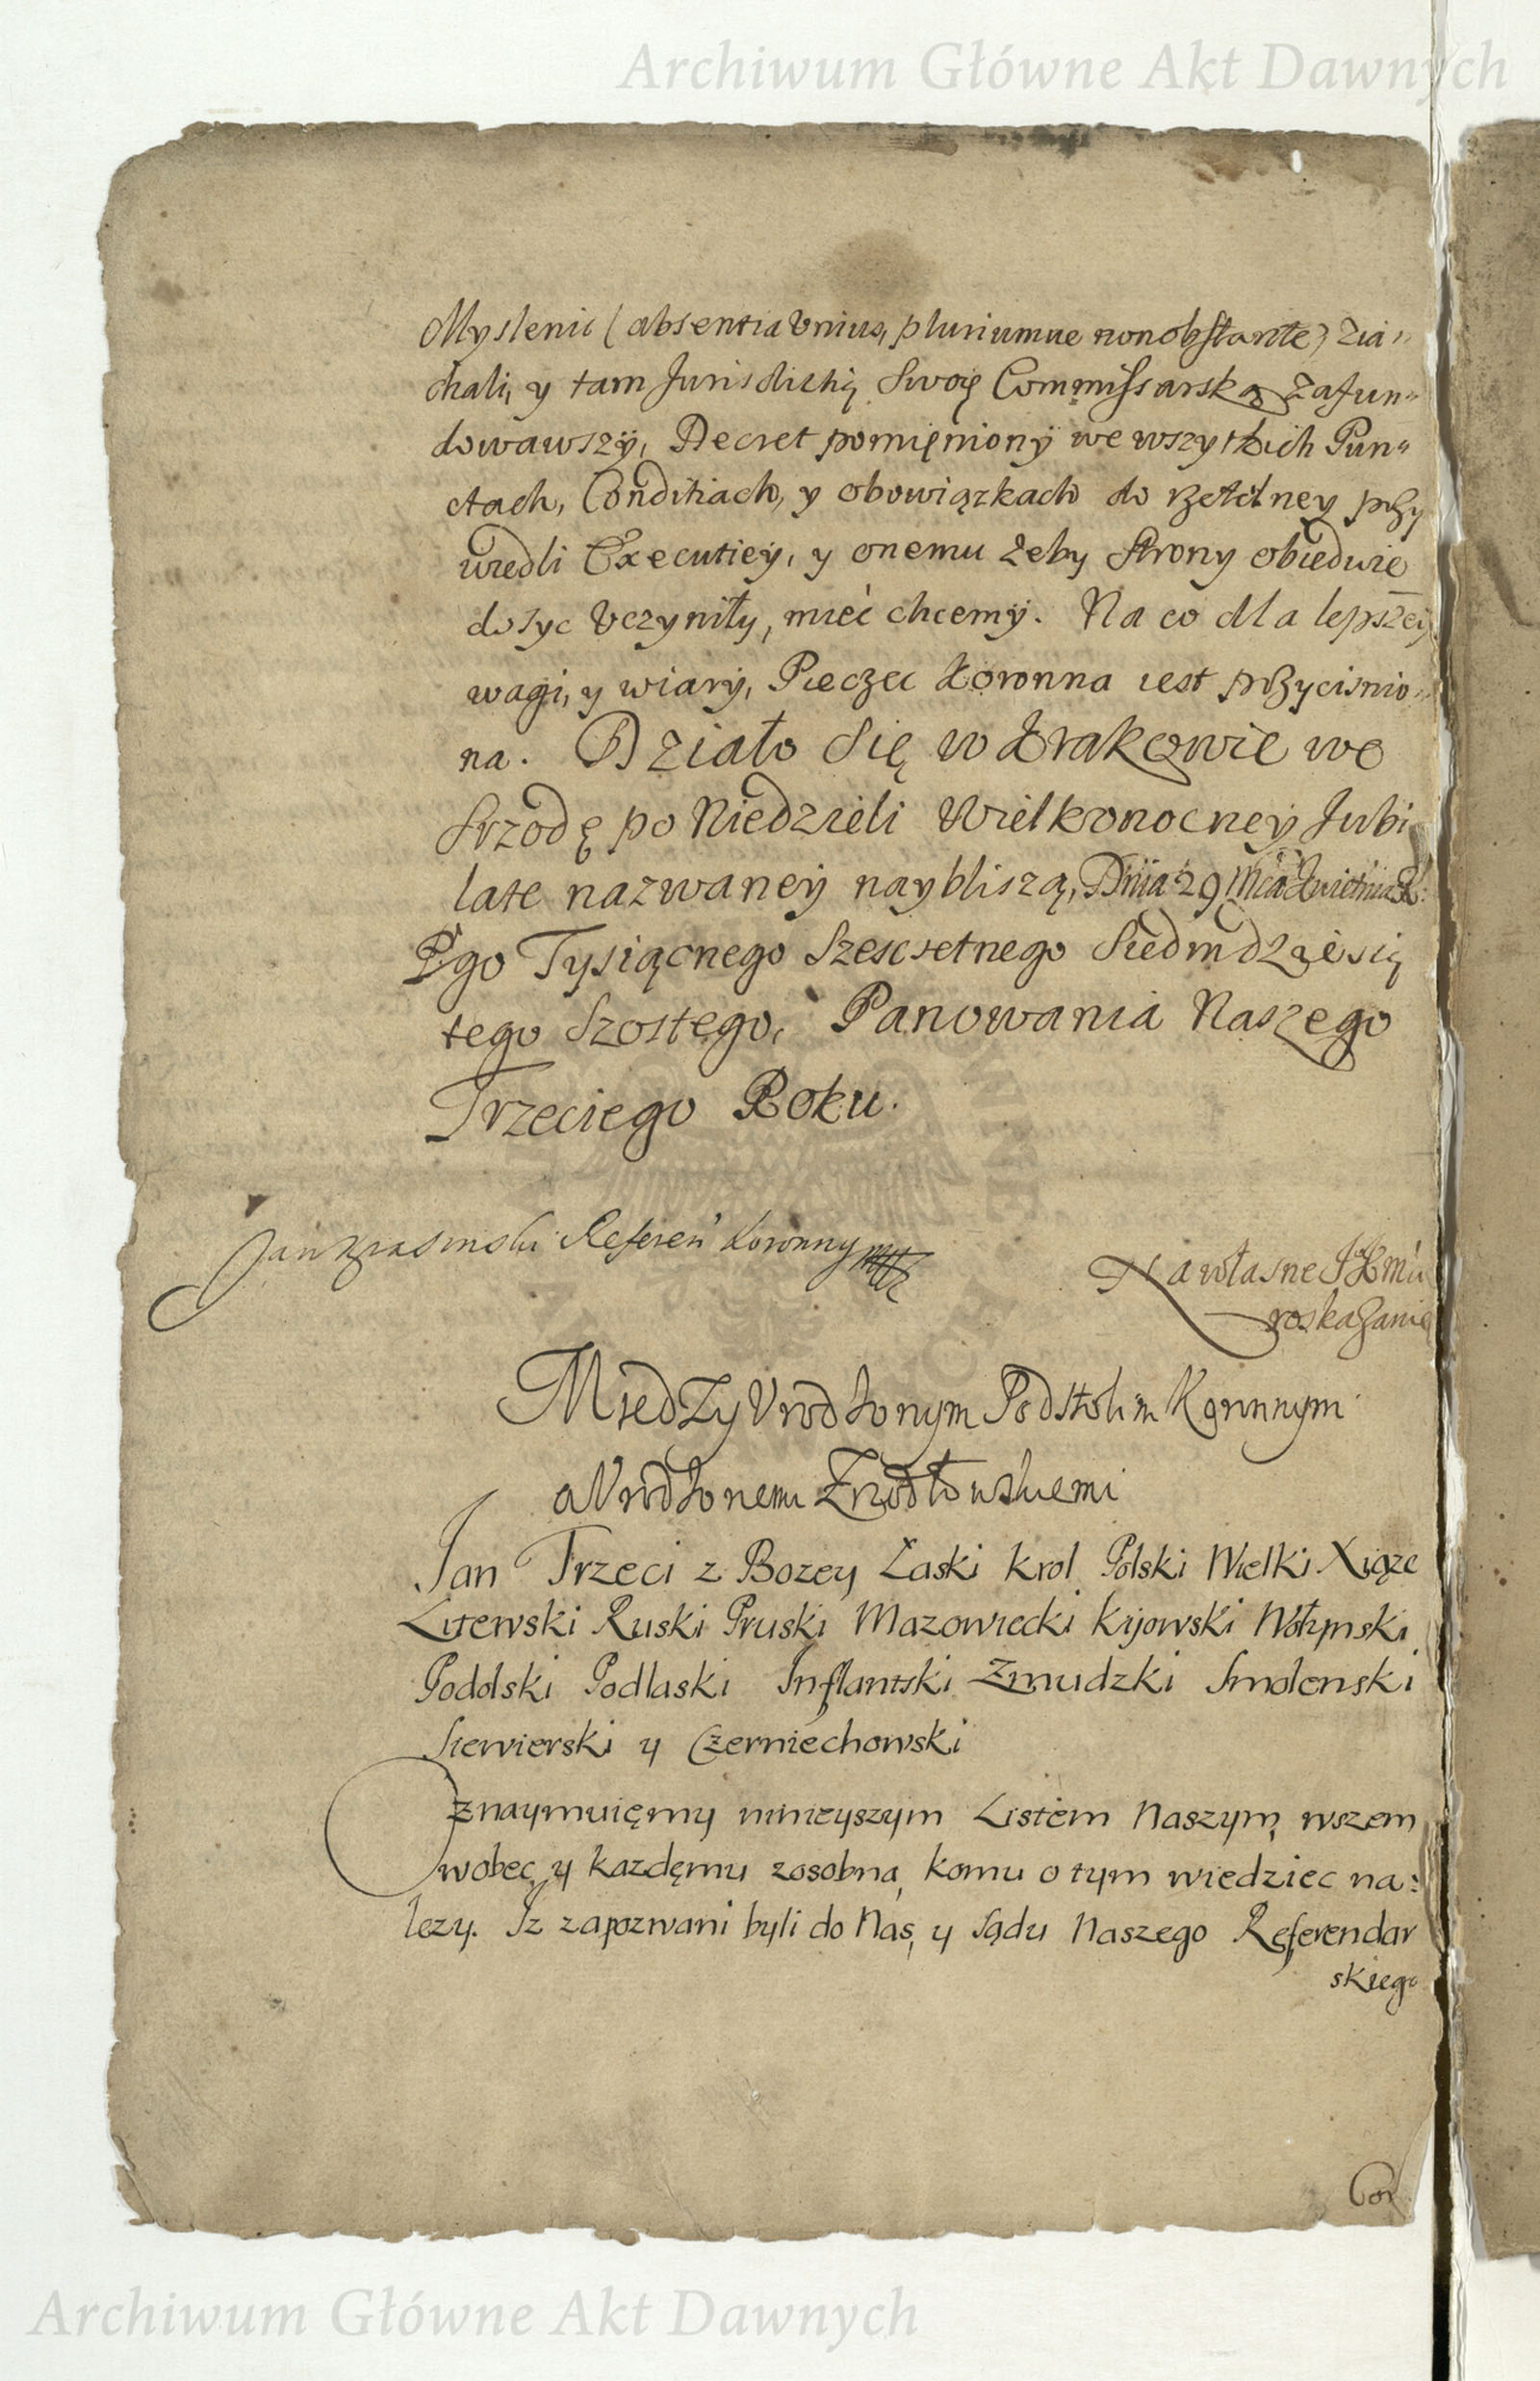 Archiwum Główne Akt Dawnych
Myslenic (absentia Vnius, pluriumue non obstante) zia„
chali, y tam Jurisdictią Swoię Commissarską zafun„
dowawszÿ, Decret pomięnionÿ we wszytkich Pun„
ctach, Conditiach, y obowiązkach do rzetelney przy
wiedli Executieÿ, y onemu żeby Strony obiedwie
dosyc Vczyniły, mieć chcemÿ. Na co dla lepszeÿ
wagi, y wiarÿ, Pieczec Koronna iest przycisnio„
na. Działo Się w Krakowie we
Srzodę po Niedzieli Wielkonocneÿ Jubi
late nazwaneÿ naybliszą, Dnia 29 Mca Kwietnia R:
Pgo Tysiącnego Szescsetnego Siedmdziesią
tego Szostego, Panowania Naszego
Trzeciego Roku.
Jan Krasinski Referen Koronny
Na własne JKMci
roskazanie
Między Vrodzonym Podstolim Koronnym
a Vrodzonemi Zrzodłowskiemi
Jan Trzeci z Bozey Łaski Krol Polski Wielki Xiąze
Litewski Ruski Pruski Mazowiecki Kijowski Wołynski
Podolski Podlaski Inflantski Zmudzki Smolenski
Siewierski y Czerniechowski
Oznaymuięmy ninieyszym Listem Naszym, wszem
wobec, y kazdęmu zosobna, komu o tym wiedziec na:
lezy. Iz zapozwani byli do Nas, y sądu Naszego Referendar
skiego
Cor
Archiwum Główne Akt Dawnych